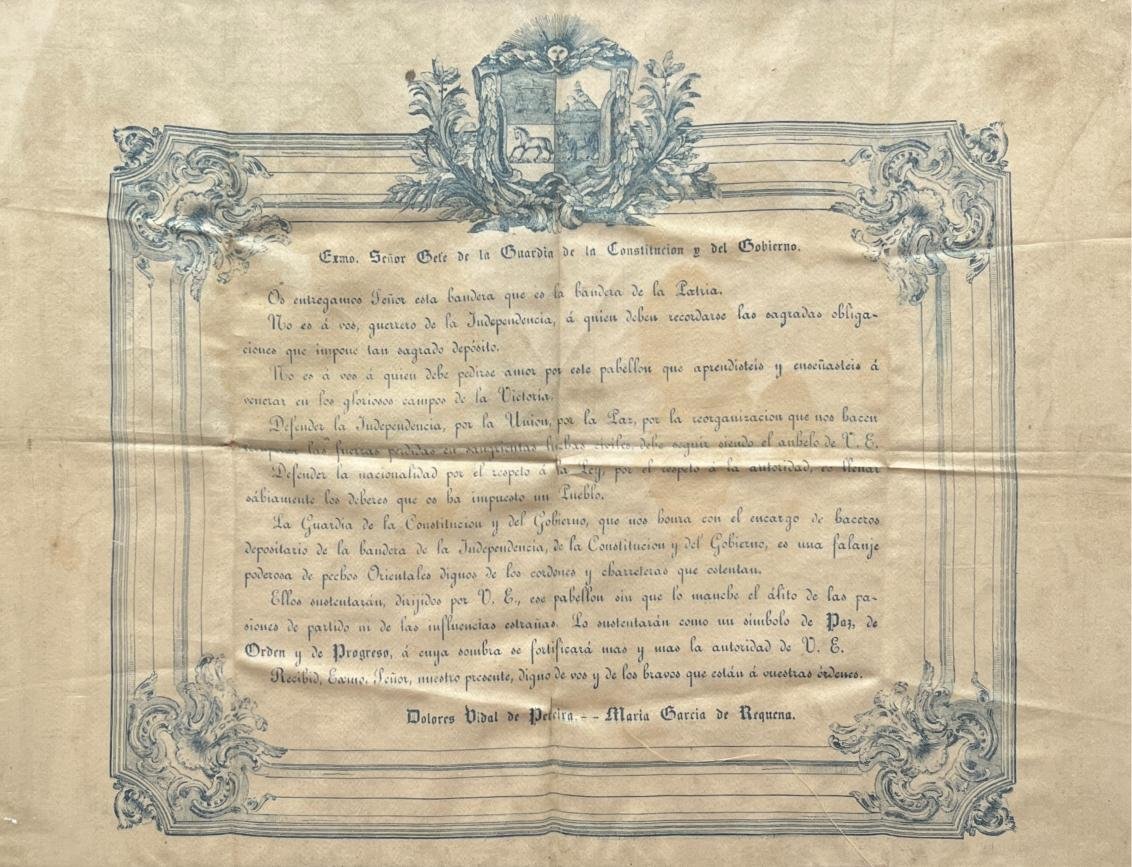 Exmo. Señor Gefe de la Guardia de la Constitucion y del Gobierno.
Os entregamos Señor esta bandera que es la bandera de la Patria.
No es á vos, guerrero de la Independencia, á quien deben recordarse las sagradas obliga-
ciones que impone tan sagrado depósito.
No es á vos á quien debe pedirse amor por este pabellon que aprendisteis y enseñasteis á
venerar en los gloriosos campos de la Victoria.
Defender la Independencia, por la Union, por la Paz, por la reorganizacion que nos hacen
las fuerzas perdidas en sangrientas luchas civiles, debe seguir siendo el anhelo de V. E.
Defender la nacionalidad por el respeto á la Ley, por el respeto á la autoridad, es llenar
sábiamente los deberes que os ha impuesto un Pueblo.
La Guardia de la Constitucion y del Gobierno, que nos honra con el encargo de haceros
depositario de la bandera de la Independencia, de la Constitucion y del Gobierno, es una falanje
poderosa de pechos Orientales dignos de los cordones y charreteras que ostentan.
Ellos sustentarán, dirijidos por V. E., ese pabellon sin que lo manche el álito de las pa-
siones de partido ni de las influencias estrañas. Lo sustentarán como un símbolo de Paz, de
Orden y de Progreso, á cuya sombra se fortificará mas y mas la autoridad de V. E.
Recibid, Exmo. Señor, nuestro presente, digno de vos y de los bravos que están á vuestras órdenes.
Dolores Vidal de Pereira.-- Maria Garcia de Requena.